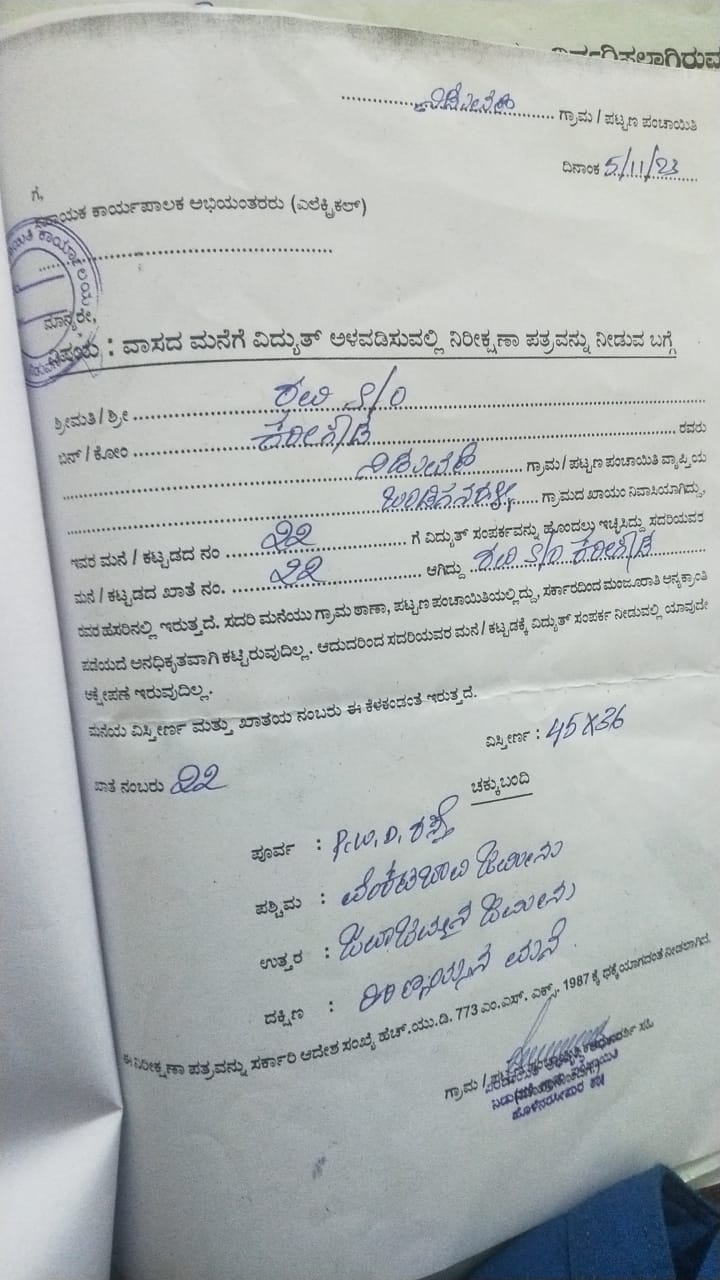 ನಿರ್ವಹಿಸಲಾಗಿರುವ
............ನಿಡುವಣಿ............ ಗ್ರಾಮ / ಪಟ್ಟಣ ಪಂಚಾಯಿತಿ
ದಿನಾಂಕ 5/11/23
ಗೆ,
ಸಹಾಯಕ ಕಾರ್ಯಪಾಲಕ ಅಭಿಯಂತರರು (ಎಲೆಕ್ಟ್ರಿಕಲ್)
ಮಾನ್ಯರೇ,
ವಿಷಯ : ವಾಸದ ಮನೆಗೆ ವಿದ್ಯುತ್ ಅಳವಡಿಸುವಲ್ಲಿ ನಿರೀಕ್ಷಣಾ ಪತ್ರವನ್ನು ನೀಡುವ ಬಗ್ಗೆ
ಶ್ರೀಮತಿ / ಶ್ರೀ ............ ರವಿ S/O ............
ಬಿನ್ / ಕೋಂ ............ ಕರೀಗೌಡ ............ ರವರು
............ ಗ್ರಾಮ / ಪಟ್ಟಣ ಪಂಚಾಯಿತಿ ವ್ಯಾಪ್ತಿಯ
............ ಗ್ರಾಮದ ಖಾಯಂ ನಿವಾಸಿಯಾಗಿದ್ದು,
ಇವರ ಮನೆ / ಕಟ್ಟಡದ ನಂ ...... 22 ...... ಗೆ ವಿದ್ಯುತ್ ಸಂಪರ್ಕವನ್ನು ಹೊಂದಲು ಇಚ್ಛಿಸಿದ್ದು ಸದರಿಯವರ
ಮನೆ / ಕಟ್ಟಡದ ಖಾತೆ ನಂ. ...... 22 ...... ಆಗಿದ್ದು ರವಿ S/O ಕರೀಗೌಡ
ರವರ ಹೆಸರಿನಲ್ಲಿ ಇರುತ್ತದೆ. ಸದರಿ ಮನೆಯು ಗ್ರಾಮ ಠಾಣಾ, ಪಟ್ಟಣ ಪಂಚಾಯಿತಿಯಲ್ಲಿದ್ದು, ಸರ್ಕಾರದಿಂದ ಮಂಜೂರಾತಿ ಅನ್ಯಕ್ರಾಂತಿ
ಪಡೆಯದೆ ಅನಧಿಕೃತವಾಗಿ ಕಟ್ಟಿರುವುದಿಲ್ಲ. ಆದುದರಿಂದ ಸದರಿಯವರ ಮನೆ / ಕಟ್ಟಡಕ್ಕೆ ವಿದ್ಯುತ್ ಸಂಪರ್ಕ ನೀಡುವಲ್ಲಿ ಯಾವುದೇ
ಆಕ್ಷೇಪಣೆ ಇರುವುದಿಲ್ಲ.
ಮನೆಯ ವಿಸ್ತೀರ್ಣ ಮತ್ತು ಖಾತೆಯ ನಂಬರು ಈ ಕೆಳಕಂಡಂತೆ ಇರುತ್ತದೆ.
ವಿಸ್ತೀರ್ಣ : 45X36
ಖಾತೆ ನಂಬರು 22
ಚಕ್ಕುಬಂದಿ
ಪೂರ್ವ : P.W.D. ರಸ್ತೆ
ಪಶ್ಚಿಮ : ವೆಂಕಟಾಚಲ ಜಮೀನು
ಉತ್ತರ : ಜಮೀನು
ದಕ್ಷಿಣ : ಮನೆ.
ಈ ನಿರೀಕ್ಷಣಾ ಪತ್ರವನ್ನು ಸರ್ಕಾರಿ ಆದೇಶ ಸಂಖ್ಯೆ ಹೆಚ್.ಯು.ಡಿ. 773 ಎಂ.ಎನ್. ಎಕ್ಸ್. 1987 ಕ್ಕೆ ಧಕ್ಕೆಯಾಗದಂತೆ ನೀಡಲಾಗಿದೆ.
ಗ್ರಾಮ / ಪಟ್ಟಣ ಪಂಚಾಯ್ತಿ ಕಾರ್ಯದರ್ಶಿ ಸಹಿ